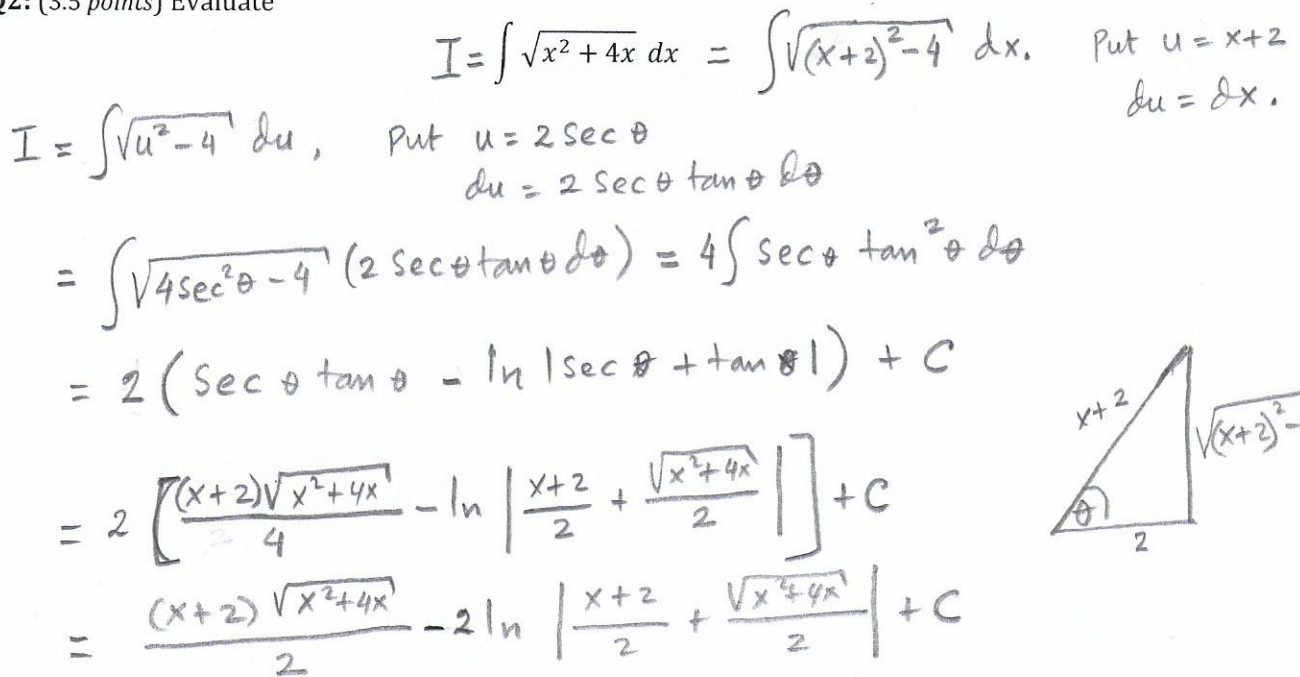 Q2: (3.5 points) Evaluate
I = ∫ √(x² + 4x) dx = ∫ √((x+2)² - 4) dx. Put u = x+2
du = dx.
I = ∫ √(u² - 4) du, Put u = 2 sec θ
du = 2 sec θ tan θ dθ
= ∫ √(4sec²θ - 4) (2 sec θ tan θ dθ) = 4 ∫ sec θ tan² θ dθ
= 2 (sec θ tan θ - ln |sec θ + tan θ|) + C
= 2 [ (x+2)√(x²+4x) / 4 - ln | (x+2)/2 + √(x²+4x)/2 | ] + C
x+2
√((x+2)² -
θ
2
= (x+2) √(x²+4x) / 2 - 2 ln | (x+2)/2 + √(x²+4x)/2 | + C